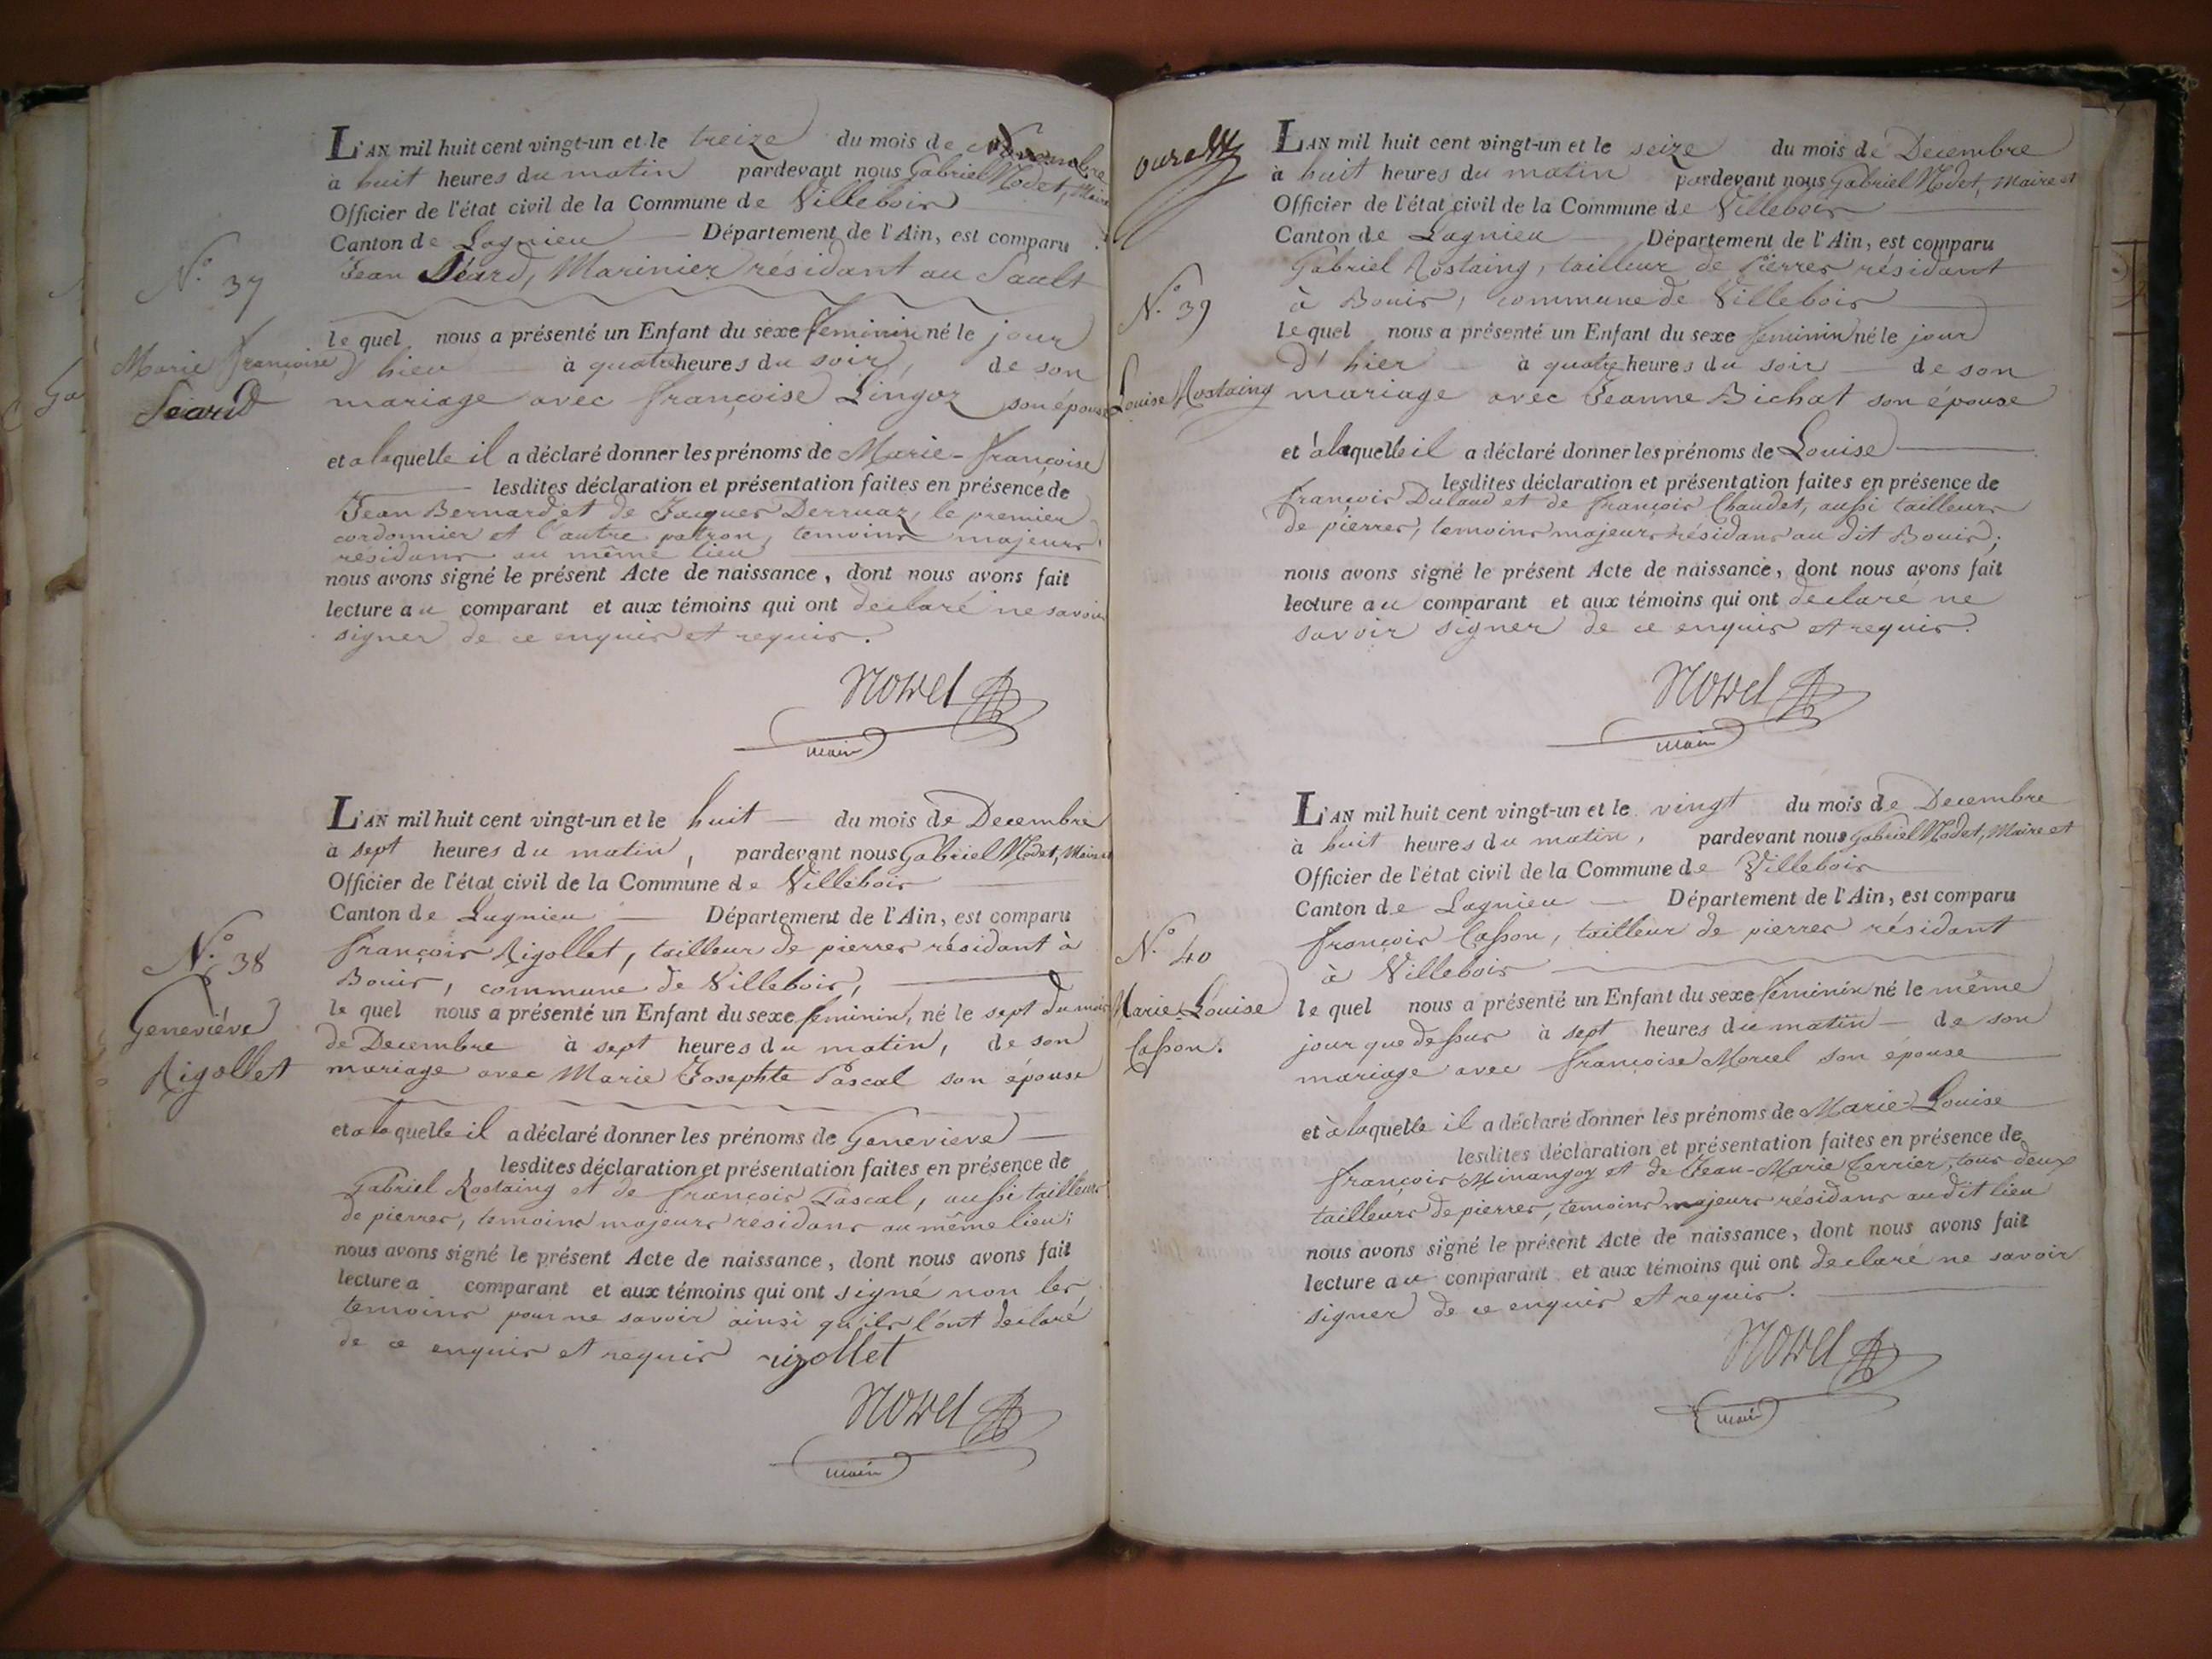 L'AN mil huit cent vingt-un et le treize du mois de Novembre
à huit heures du matin pardevant nous Gabriel Nodet, Maire
Officier de l'état civil de la Commune de Villebois
Canton de Lagnieu Département de l'Ain, est comparu
Jean Séard, Marinier résidant au Sault
N.° 37
Marie françoise
Séard
le quel nous a présenté un Enfant du sexe feminin né le jour
d'hier à quatre heures du soir, de son
mariage avec françoise Lingoz son épouse
et a laquelle il a déclaré donner les prénoms de Marie-françoise
lesdites déclaration et présentation faites en présence de
Jean Bernard et de Jacques Derruaz, le premier
cordonnier et l'autre patron, temoins majeurs
résidans au même lieu
nous avons signé le présent Acte de naissance, dont nous avons fait
lecture au comparant et aux témoins qui ont declaré ne savoir
signer de ce enquis et requis.
maire
L'AN mil huit cent vingt-un et le huit du mois de Decembre
à sept heures du matin, pardevant nous Gabriel Nodet, Maire et
Officier de l'état civil de la Commune de Villebois
Canton de Lagnieu Département de l'Ain, est comparu
françois Rigollet, tailleur de pierres résidant à
Bouis, commune de Villebois,
N.° 38
Geneviéve
Rigollet
le quel nous a présenté un Enfant du sexe feminin, né le sept du mois
de Decembre à sept heures du matin, de son
mariage avec Marie Josephte Pascal son épouse
et a laquelle il a déclaré donner les prénoms de Genevieve
lesdites déclaration et présentation faites en présence de
Gabriel Rostaing et de françois Pascal, aussi tailleurs
de pierres, temoins majeurs résidans au même lieu;
nous avons signé le présent Acte de naissance, dont nous avons fait
lecture a comparant et aux témoins qui ont signé non les
temoins pour ne savoir ainsi qu'ils l'ont declaré
de ce enquis et requis rigollet
maire
L'AN mil huit cent vingt-un et le seize du mois de Decembre
à huit heures du matin pardevant nous Gabriel Nodet, Maire et
Officier de l'état civil de la Commune de Villebois
Canton de Lagnieu Département de l'Ain, est comparu
Gabriel Rostaing, tailleur de Pierres résidant
à Bouis, commune de Villebois
N.° 39
Louise Rostaing
le quel nous a présenté un Enfant du sexe feminin né le jour
d'hier à quatre heures du soir de son
mariage avec Jeanne Bichat son épouse
et à laquelle il a déclaré donner les prénoms de Louise
lesdites déclaration et présentation faites en présence de
françois Dulaud et de françois Chaudet, aussi tailleurs
de pierres, temoins majeurs résidans au dit Bouis;
nous avons signé le présent Acte de naissance, dont nous avons fait
lecture au comparant et aux témoins qui ont declaré ne
savoir signer de ce enquis et requis.
maire
L'AN mil huit cent vingt-un et le vingt du mois de Decembre
à huit heures du matin, pardevant nous Gabriel Nodet, Maire et
Officier de l'état civil de la Commune de Villebois
Canton de Lagnieu Département de l'Ain, est comparu
françois Casson, tailleur de pierres résidant
à Villebois
N.° 40
Marie-Louise
Casson.
le quel nous a présenté un Enfant du sexe féminin né le même
jour que dessus à sept heures du matin de son
mariage avec françoise Morel son épouse
et à laquelle il a déclaré donner les prénoms de Marie-Louise
lesdites déclaration et présentation faites en présence de
françois Minangoy et de Jean-Marie Terrier, tous deux
tailleurs de pierres, temoins majeurs résidans audit lieu
nous avons signé le présent Acte de naissance, dont nous avons fait
lecture au comparant et aux témoins qui ont declaré ne savoir
signer de ce enquis et requis.
maire